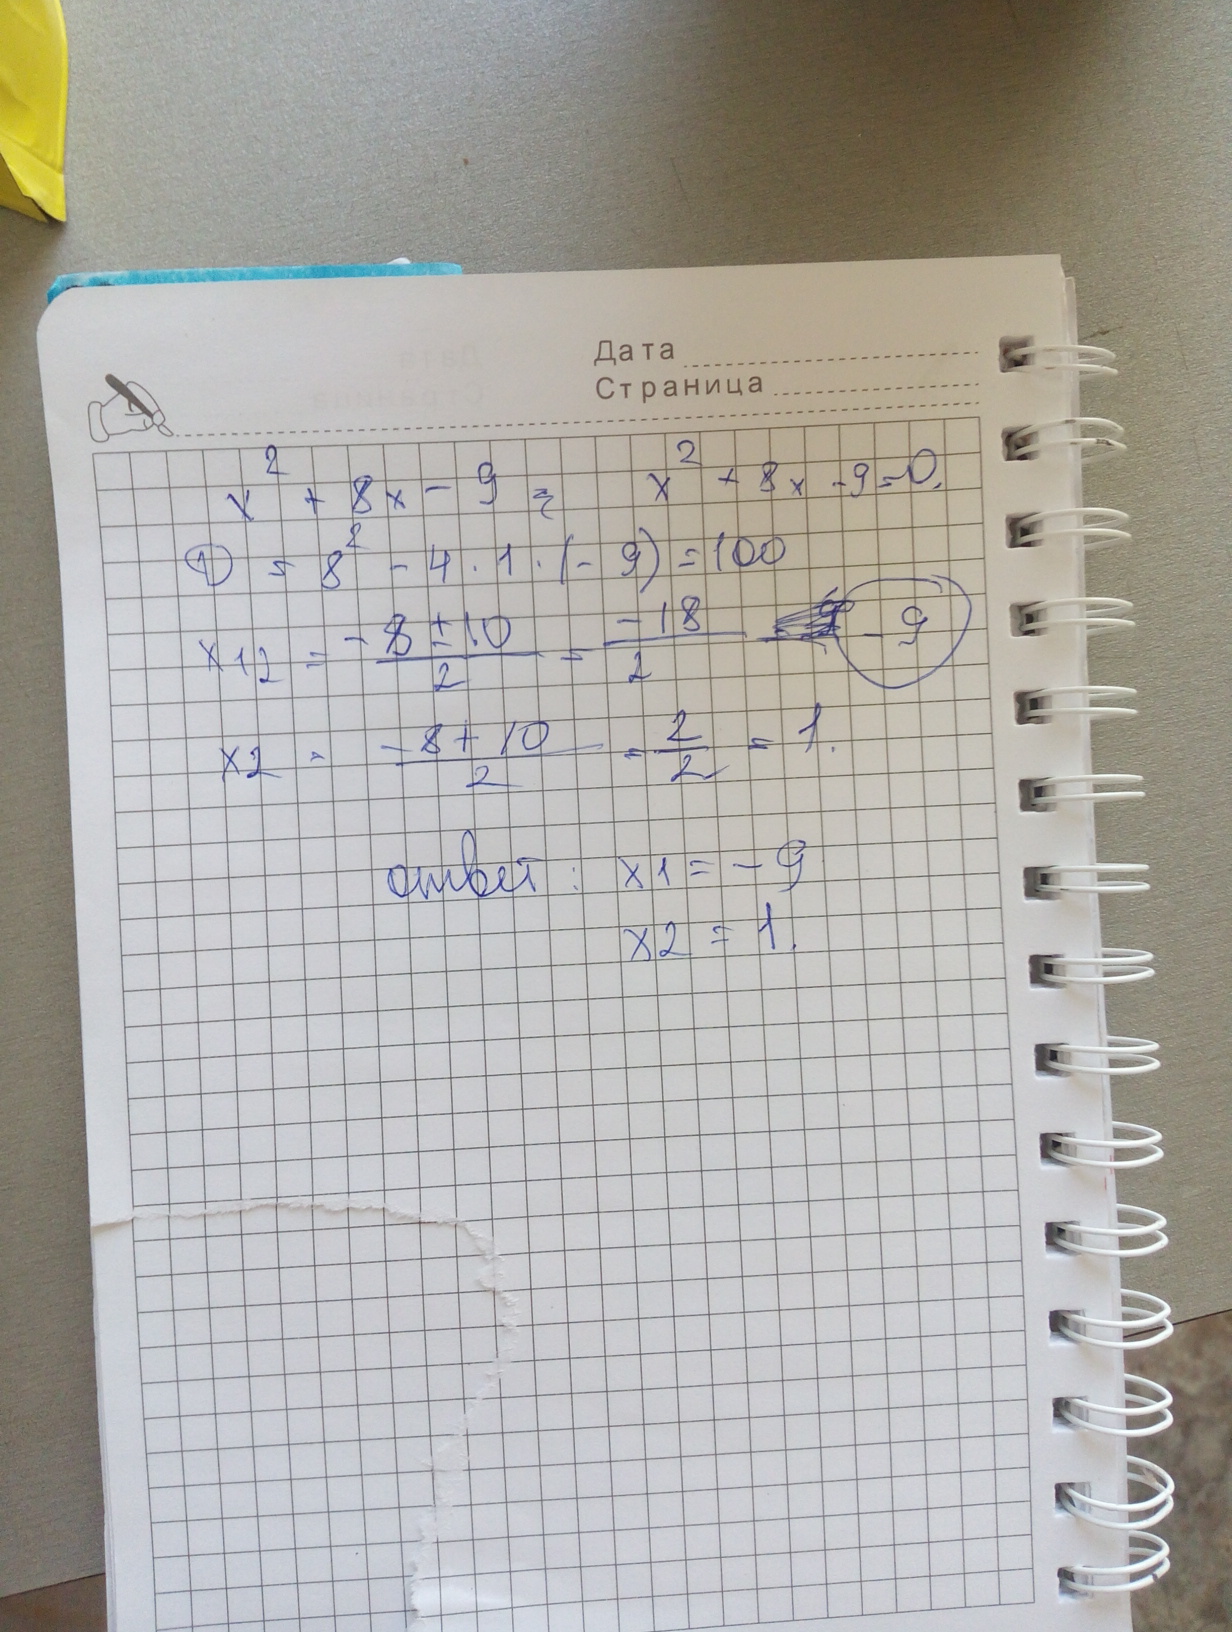 Дата
Страница
x² + 8x - 9 = x² + 8x - 9 = 0.
D = 8² - 4 · 1 · (- 9) = 100
x12 = -8 ± 10 / 2 = -18 / 2 = -9
x2 = -8 + 10 / 2 = 2 / 2 = 1.
ответ: x1 = - 9
x2 = 1.